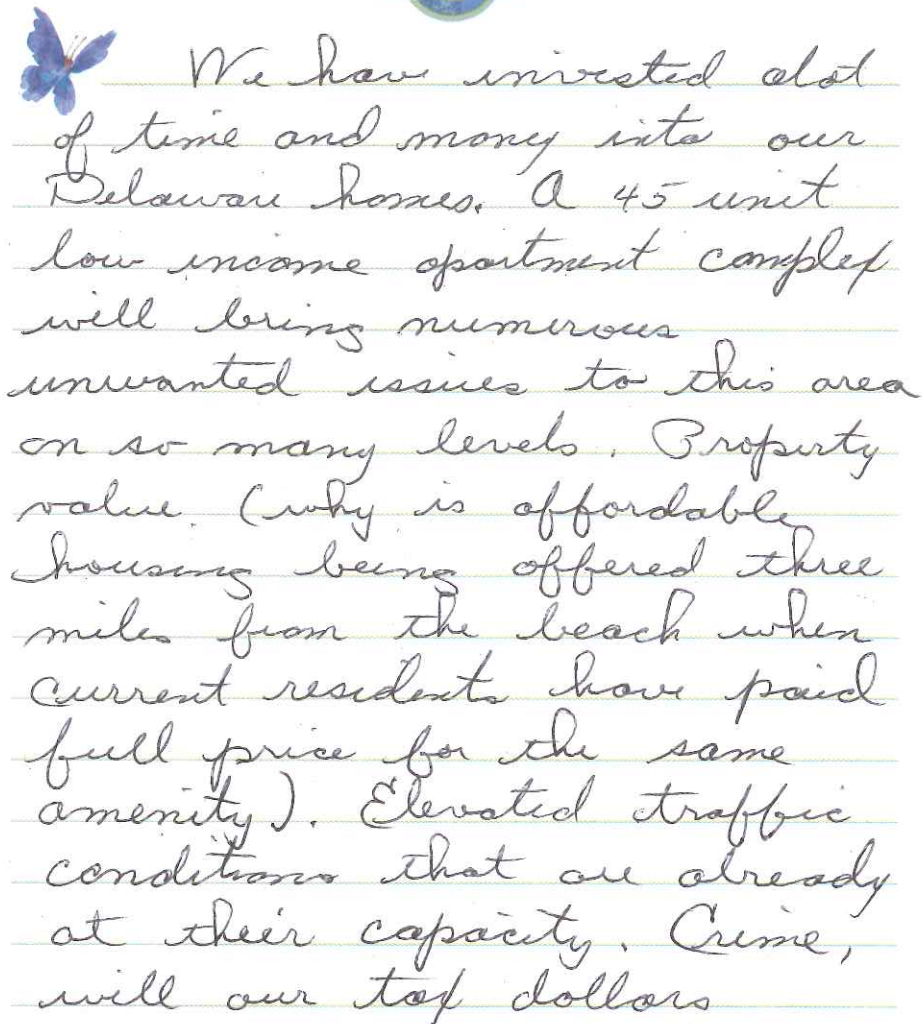 We have invested alot
of time and money into our
Delaware homes. A 45 unit
low income apartment complex
will bring numerous
unwanted issues to this area
on so many levels. Property
value. (why is affordable
housing being offered three
miles from the beach when
current residents have paid
full price for the same
amenity). Elevated traffic
conditions that are already
at their capacity. Crime,
will our tax dollars